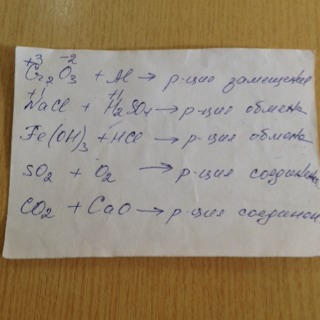 +3 -2
Cr2O3 + Al → р-ция замещения
+1 +1
NaCl + H2SO4 → р-ция обмена
Fe(OH)3 + HCl → р-ция обмена
SO2 + O2 → р-ция соединения
CO2 + CaO → р-ция соединен